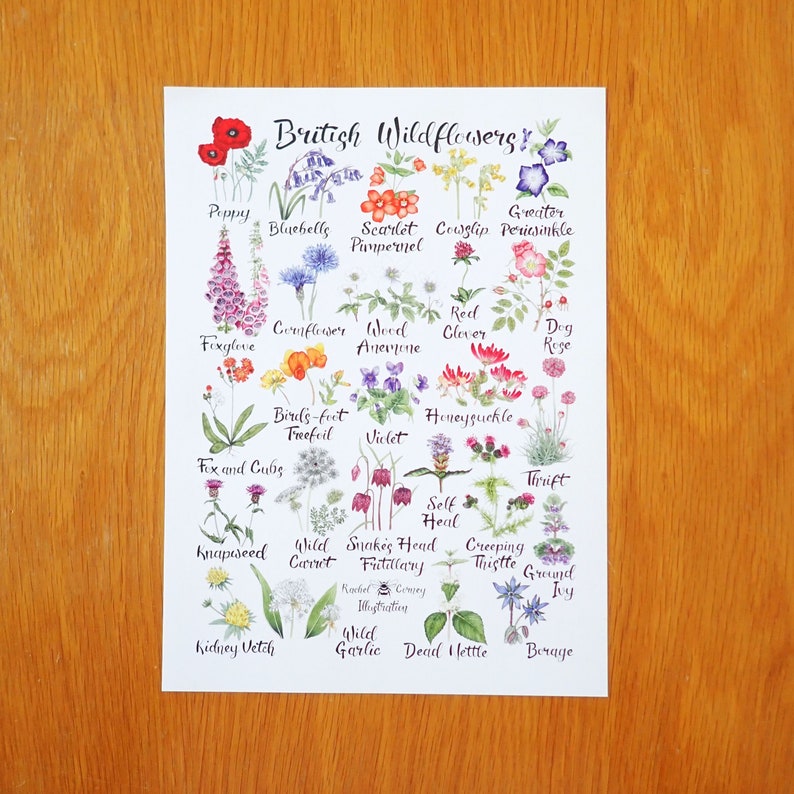 British Wildflowers
Poppy
Bluebells
Scarlet
Pimpernel
Cowslip
Greater
Periwinkle
Foxglove
Cornflower
Wood
Anemone
Red
Clover
Dog
Rose
Fox and Cubs
Bird's-foot
Treefoil
Violet
Honeysuckle
Thrift
Knapweed
Wild
Carrot
Snake's Head
Fritillary
Self
Heal
Creeping
Thistle
Ground
Ivy
Kidney Vetch
Wild
Garlic
Rachel Corney
Illustration
Dead Nettle
Borage